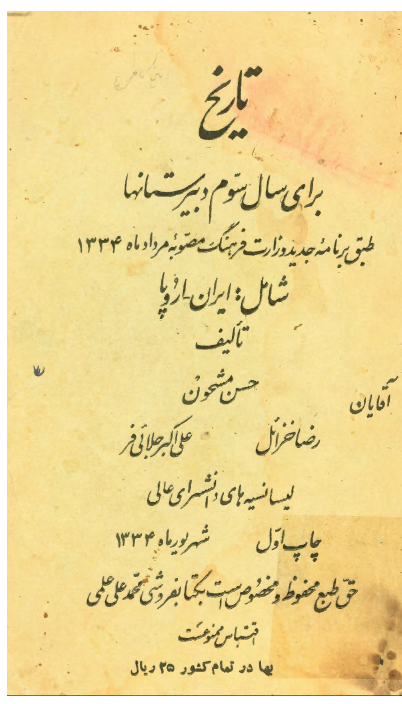 تاریخ
برای سال سوّم دبیرستانها
طبق برنامهٔ جدید وزارت فرهنگ مصوّبهٔ مرداد ماه ۱۳۳۴
شامل: ایران - اروپا
تألیف
آقایان
حسن مشحون
رضا خزائل علی اکبر جلائی فر
لیسانسیه های دانشسرای عالی
چاپ اوّل شهریور ماه ۱۳۳۴
حقّ طبع محفوظ و مخصوص است بکتابفروشی محمّد علی علمی
اقتباس ممنوعست
بها در تمام کشور ۲۵ ریال